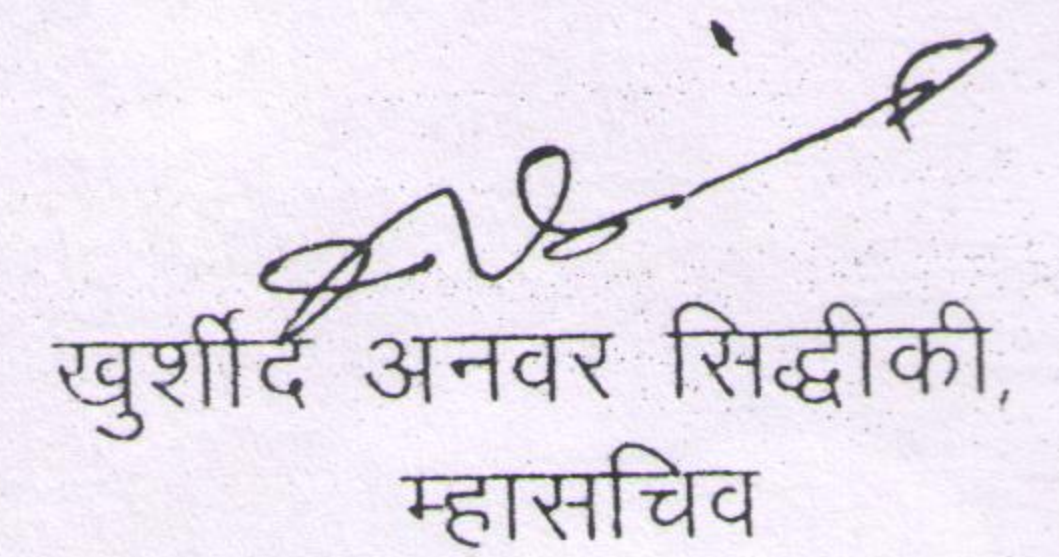 खुर्शीद अनवर सिद्धीकी,
म्हासचिव